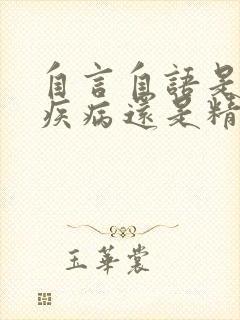 自言自語是
疾病還是精
玉華裳